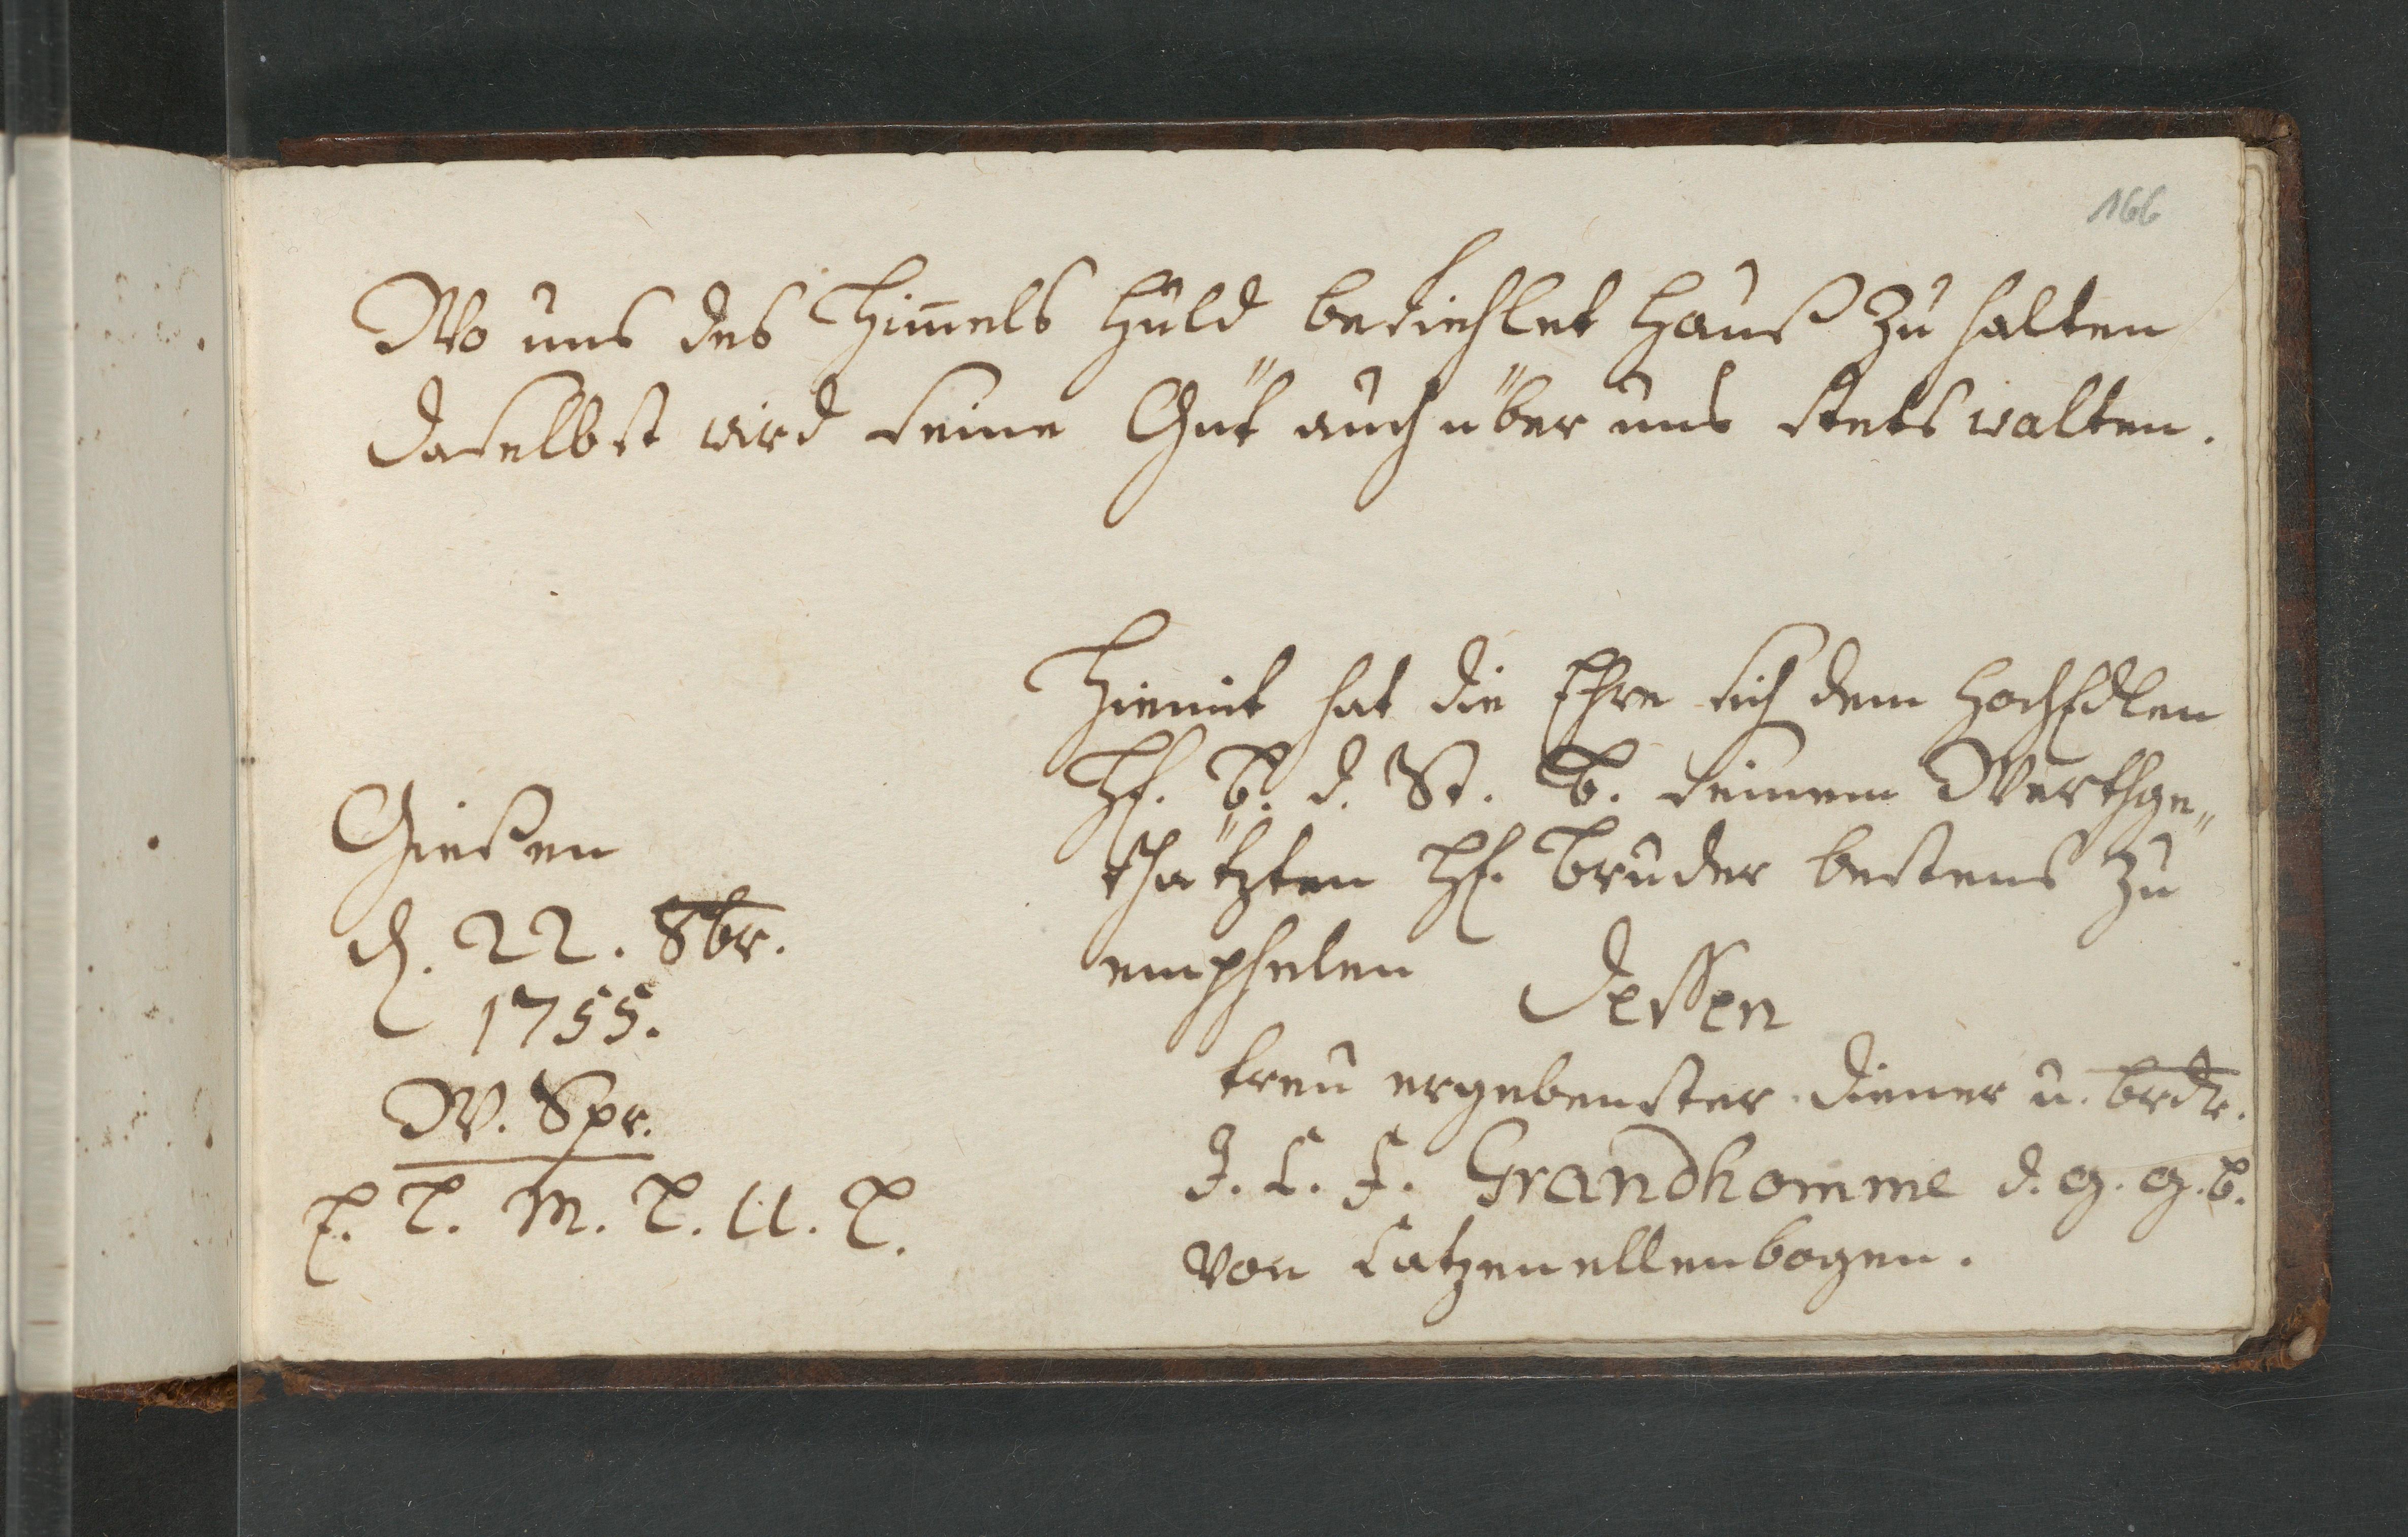 166
Wo uns des Him̄els Huld befiehlet Hauß zu halten
daselbst wird seine Güt auch über uns stets walten.
Hiemit hat die Ehre sich dem HochEdlen
H. B. d. St. B. seinem Werthge„
schätzten H. Bruder bestens zu
emphelen Dessen
treu ergebenster Diener u. brdr.
J. L. F. Grandhomme d. g. g. b.
von Catzenellenbogen.
Giesen
d. 22. 8br.
1755.
W. Spr.
E. T. M. T. U. T.